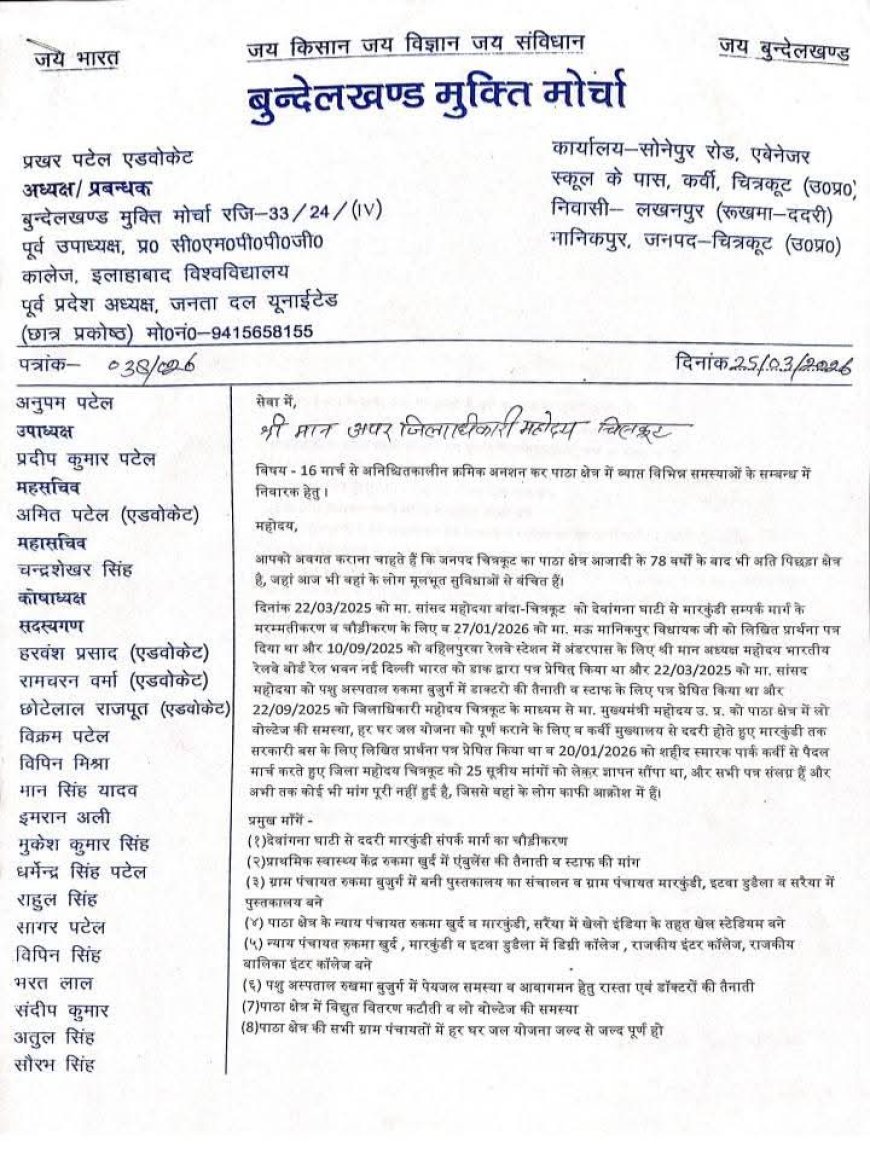 जय भारत
जय किसान जय विज्ञान जय संविधान
जय बुन्देलखण्ड
बुन्देलखण्ड मुक्ति मोर्चा
प्रखर पटेल एडवोकेट
अध्यक्ष/ प्रबन्धक
बुन्देलखण्ड मुक्ति मोर्चा रजि–33/24/(IV)
पूर्व उपाध्यक्ष, प्र० सी०एम०पी०पी०जी०
कालेज, इलाहाबाद विश्वविद्यालय
पूर्व प्रदेश अध्यक्ष, जनता दल यूनाईटेड
(छात्र प्रकोष्ठ) मो०नं०–9415658155
कार्यालय–सोनेपुर रोड, एबेनेजर
स्कूल के पास, कर्वी, चित्रकूट (उ०प्र०)
निवासी– लखनपुर (रूखमा–ददरी)
मानिकपुर, जनपद–चित्रकूट (उ०प्र०)
पत्रांक– 038/026
दिनांक 25/03/2026
अनुपम पटेल
उपाध्यक्ष
प्रदीप कुमार पटेल
महसचिव
अमित पटेल (एडवोकेट)
महासचिव
चन्द्रशेखर सिंह
कोषाध्यक्ष
सदस्यगण
हरवंश प्रसाद (एडवोकेट)
रामचरन वर्मा (एडवोकेट)
छोटेलाल राजपूत (एडवोकेट)
विक्रम पटेल
विपिन मिश्रा
मान सिंह यादव
इमरान अली
मुकेश कुमार सिंह
धर्मेन्द्र सिंह पटेल
राहुल सिंह
सागर पटेल
विपिन सिंह
भरत लाल
संदीप कुमार
अतुल सिंह
सौरभ सिंह
सेवा में,
श्री मान अपर जिलाधिकारी महोदय चित्रकूट
विषय - 16 मार्च से अनिश्चितकालीन क्रमिक अनशन कर पाठा क्षेत्र में व्याप्त विभिन्न समस्याओं के सम्बन्ध में
निवारक हेतु।
महोदय,
आपको अवगत कराना चाहते हैं कि जनपद चित्रकूट का पाठा क्षेत्र आजादी के 78 वर्षों के बाद भी अति पिछड़ा क्षेत्र
है, जहां आज भी वहां के लोग मूलभूत सुविधाओं से वंचित हैं।
दिनांक 22/03/2025 को मा. सांसद महोदया बांदा-चित्रकूट को देवांगना घाटी से मारकुंडी सम्पर्क मार्ग के
मरम्मतीकरण व चौड़ीकरण के लिए व 27/01/2026 को मा. मऊ मानिकपुर विधायक जी को लिखित प्रार्थना पत्र
दिया था और 10/09/2025 को बहिलपुरवा रेलवे स्टेशन में अंडरपास के लिए श्री मान अध्यक्ष महोदय भारतीय
रेलवे बोर्ड रेल भवन नई दिल्ली भारत को डाक द्वारा पत्र प्रेषित् किया था और 22/03/2025 को मा. सांसद
महोदया को पशु अस्पताल रुकमा बुजुर्ग में डाक्टरो की तैनाती व स्टाफ के लिए पत्र प्रेषित किया था और
22/09/2025 को जिलाधिकारी महोदय चित्रकूट के माध्यम से मा. मुख्यमंत्री महोदय उ. प्र. को पाठा क्षेत्र में लो
वोल्टेज की समस्या, हर घर जल योजना को पूर्ण कराने के लिए व कर्वी मुख्यालय से ददरी होते हुए मारकुंडी तक
सरकारी बस के लिए लिखित प्रार्थना पत्र प्रेषित किया था व 20/01/2026 को शहीद स्मारक पार्क कर्वी से पैदल
मार्च करते हुए जिला महोदय चित्रकूट को 25 सूत्रीय मांगों को लेकर ज्ञापन सौंपा था, और सभी पत्र संलग्न हैं और
अभी तक कोई भी मांग पूरी नहीं हुई है, जिससे वहां के लोग काफी आक्रोश में हैं।
प्रमुख माँगें -
(१)देवांगना घाटी से ददरी मारकुंडी संपर्क मार्ग का चौड़ीकरण
(२)प्राथमिक स्वास्थ्य केंद्र रुकमा खुर्द में एंबुलेंस की तैनाती व स्टाफ की मांग
(३) ग्राम पंचायत रुकमा बुजुर्ग में बनी पुस्तकालय का संचालन व ग्राम पंचायत मारकुंडी, इटवा डुडैला व सरैया में
पुस्तकालय बने
(४) पाठा क्षेत्र के न्याय पंचायत रुकमा खुर्द व मारकुंडी, सरैंया में खेलो इंडिया के तहत खेल स्टेडियम बने
(५) न्याय पंचायत रुकमा खुर्द , मारकुंडी व इटवा डुडैला में डिग्री कॉलेज , राजकीय इंटर कॉलेज, राजकीय
बालिका इंटर कॉलेज बने
(६) पशु अस्पताल रुखमा बुजुर्ग में पेयजल समस्या व आवागमन हेतु रास्ता एवं डॉक्टरों की तैनाती
(7)पाठा क्षेत्र में विद्युत वितरण कटौती व लो वोल्टेज की समस्या
(8)पाठा क्षेत्र की सभी ग्राम पंचायतों में हर घर जल योजना जल्द से जल्द पूर्ण हो